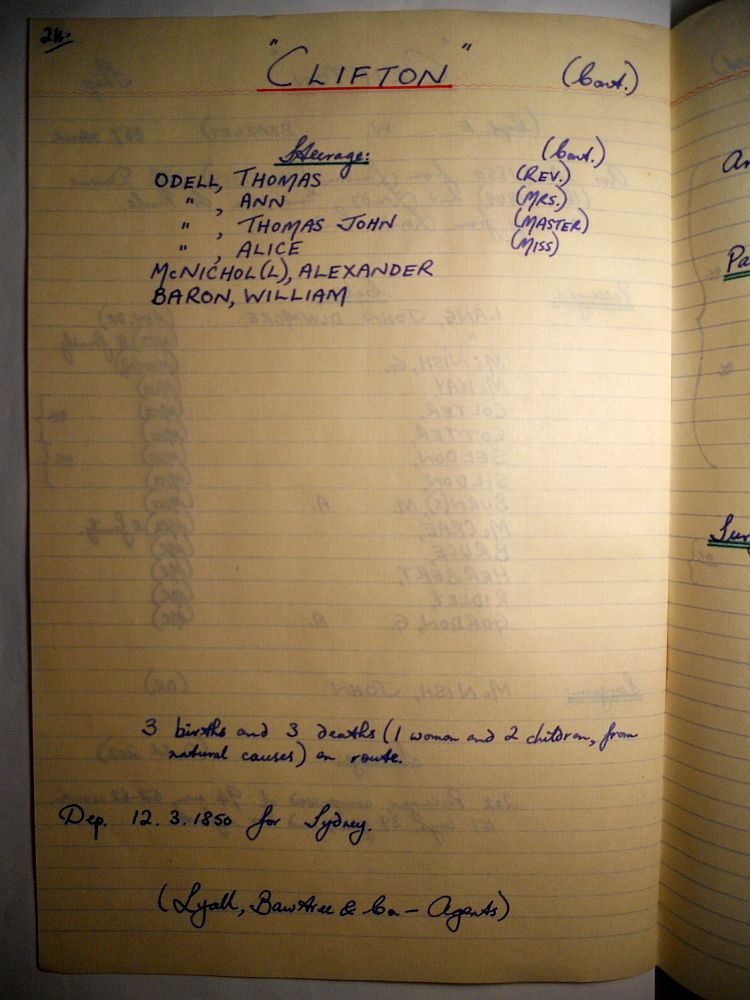 24.
"CLIFTON" (Cont.)
Steerage: (Cont.)
ODELL, THOMAS (REV.)
" , ANN (MRS.)
" , THOMAS JOHN (MASTER)
" , ALICE (MISS)
McNICHOL(L), ALEXANDER
BARON, WILLIAM
3 births and 3 deaths (1 woman and 2 children, from
natural causes) en route.
Dep. 12.3.1850 for Sydney.
(Lyall, Bawtree & Co - Agents)